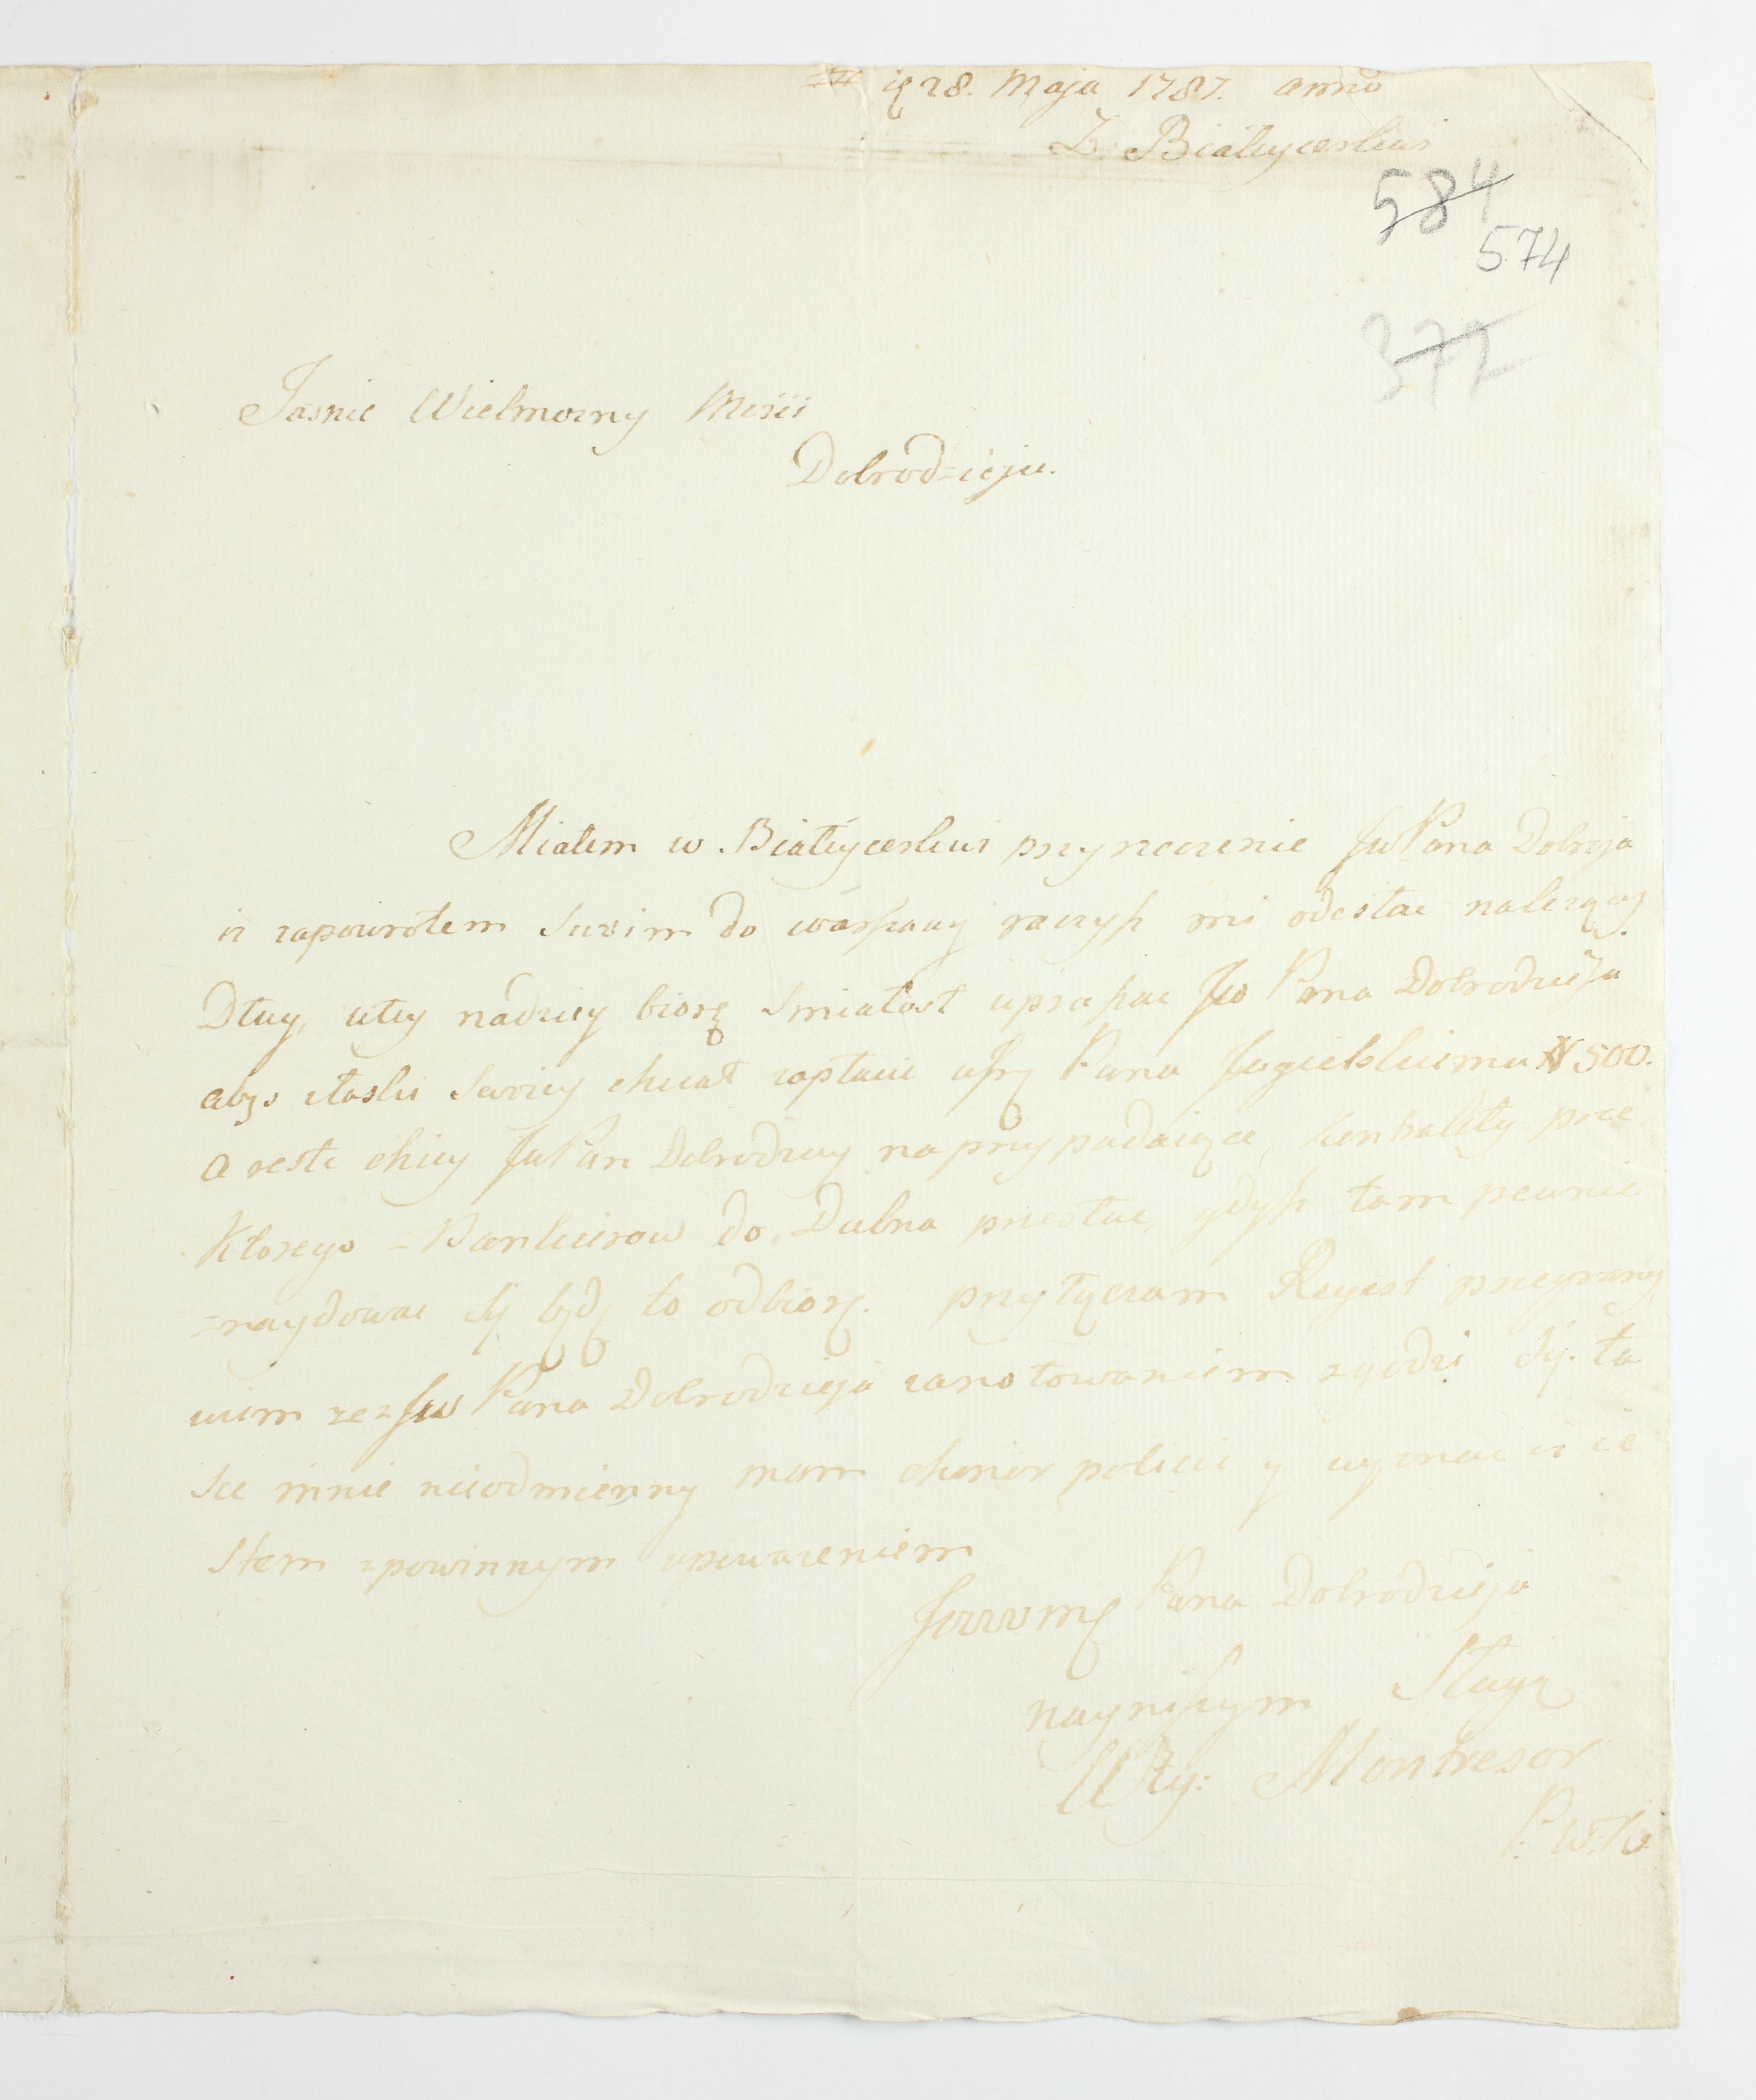 28. Maja 1787. anno
Z Białeycerkwi
584
574
372
Jasnie Wielmozny Mosci
Dobrodzieju.
Miałem w Białeycerkwi przyrzeczenie JW Pana Dobrja
iz zapowrotem Swoim do warszawy raczysz mi odesłac nalezący
Dług, ztey nadziey biorę Smiałosc upraszac JW Pana Dobrodzieja
abys złaski Swoiey chciał zapłacic Pana Jagielskiemu # 500.
a reste chciey JW Pan Dobrodziey na przypadaiące Kontrakty prze
Ktorego z Bankierow do Dubna przesłac, gdysz tam pewnie
znaydowac Sę będę to odbiorę. przyłączam Reyestr przegraney
wiem ze z JW Pana Dobrodzieja zanotowaniem zgodzi Sę. Ła
Sce mnie nieodmienney mam chonor polecic y wyznac iz ie
Stem zpowinnym upowazeniem
JWW Pana Dobrodzieja
nayniszym Sługą
Montresor
P: W: K: